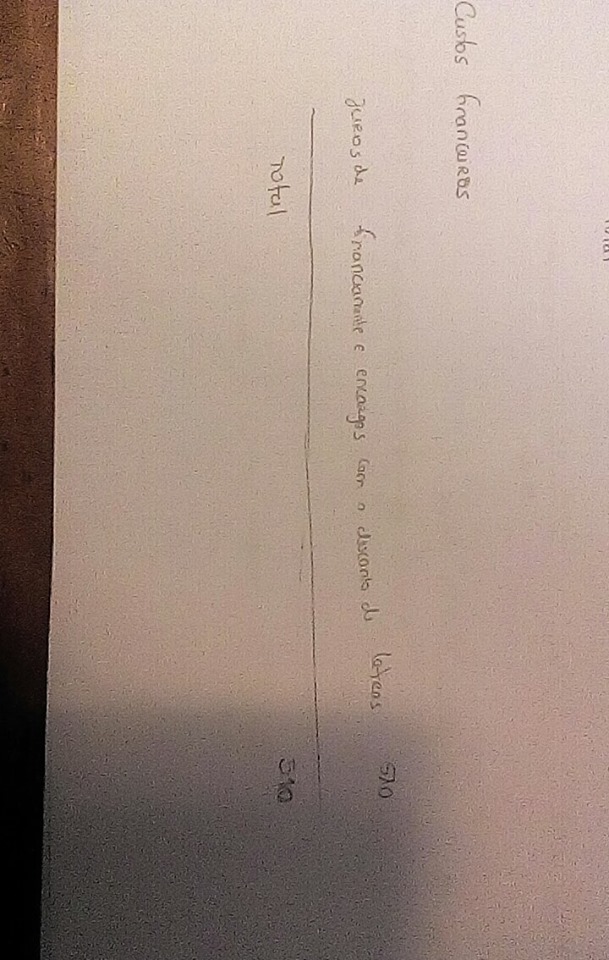 Total
Custos financeiros
juros de financiamente e encargos com o desconto de letras 510
Total 510